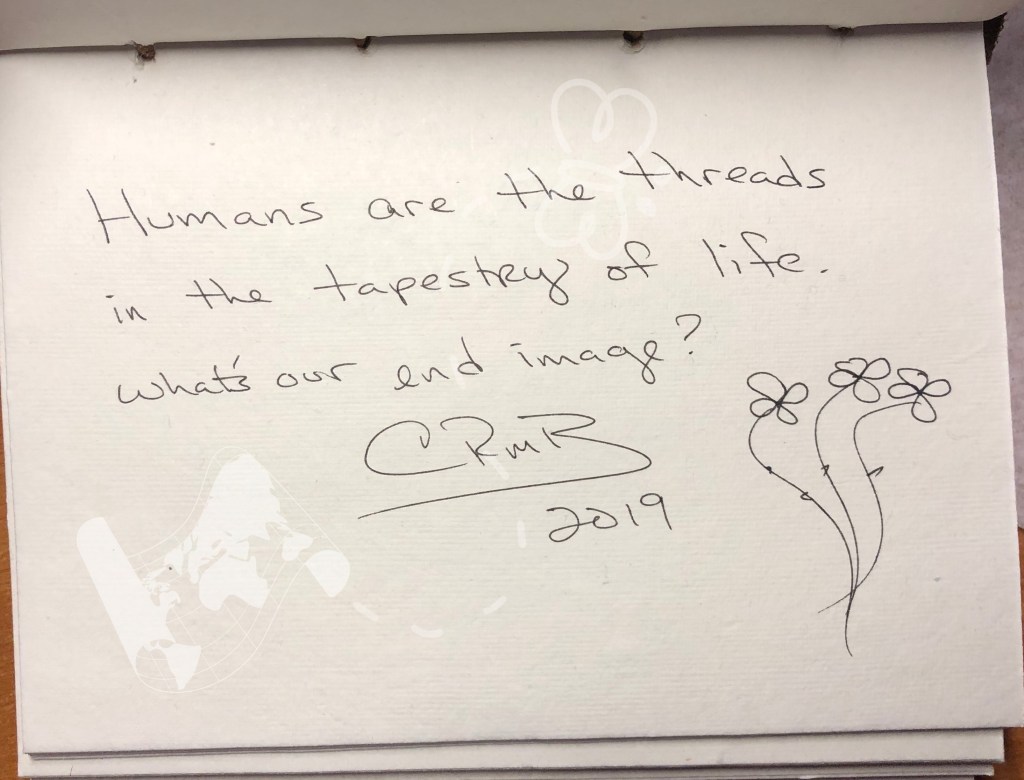 Humans are the threads
in the tapestry of life.
what's our end image?
CRmB
2019